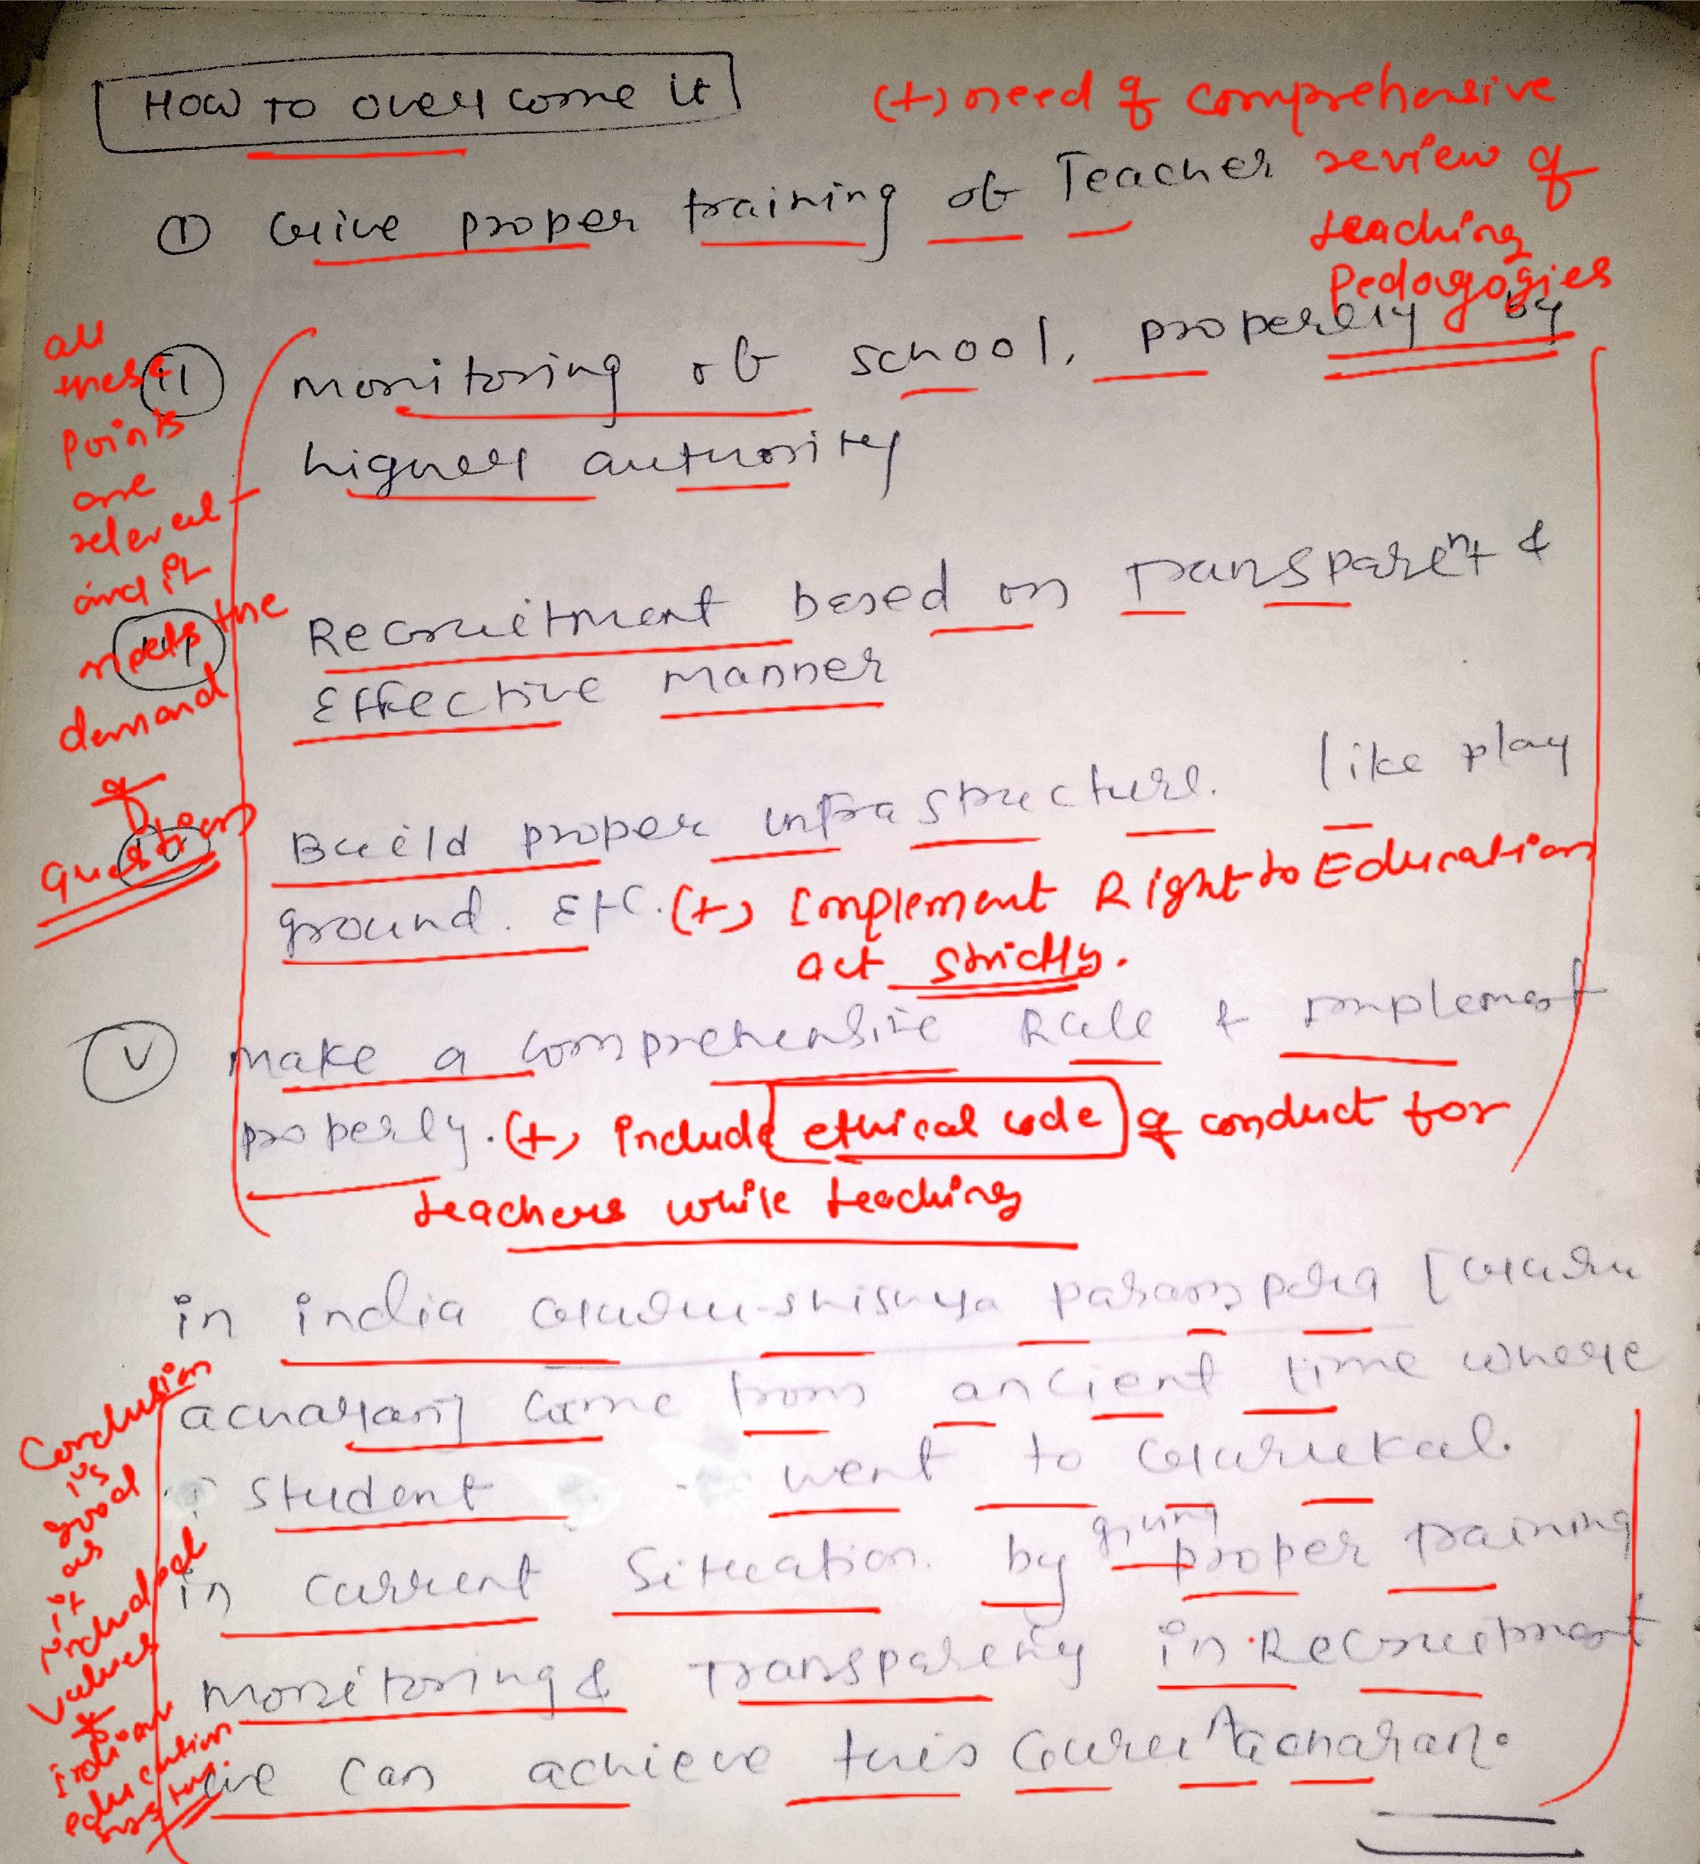 How to overcome it
(+) need of comprehensive
review of
teaching
Pedagogies
① Give proper training of Teacher
(ii) monitoring of school, properly by
higher authority
all
these
points
are
relevant
and it
meets the
demand
of
Question
(iii) Recruitment based on Transparent &
Effective manner
(iv) Build proper infrastructure. like play
ground. Etc. (+) Implement Right to Education
act strictly.
(V) make a comprehensive Rule & implement
properly. (+) include ethical code of conduct for
teachers while teaching
in india Guru-shishya parampara [Guru
acharan] came from ancient time where
student went to Gurukal.
in current situation. by giving proper training
monitoring & Transparency in Recruitment
we can achieve this Guru Aacharan.
Conclusion
is
good
as
it
included
values
of
indian
education
system.